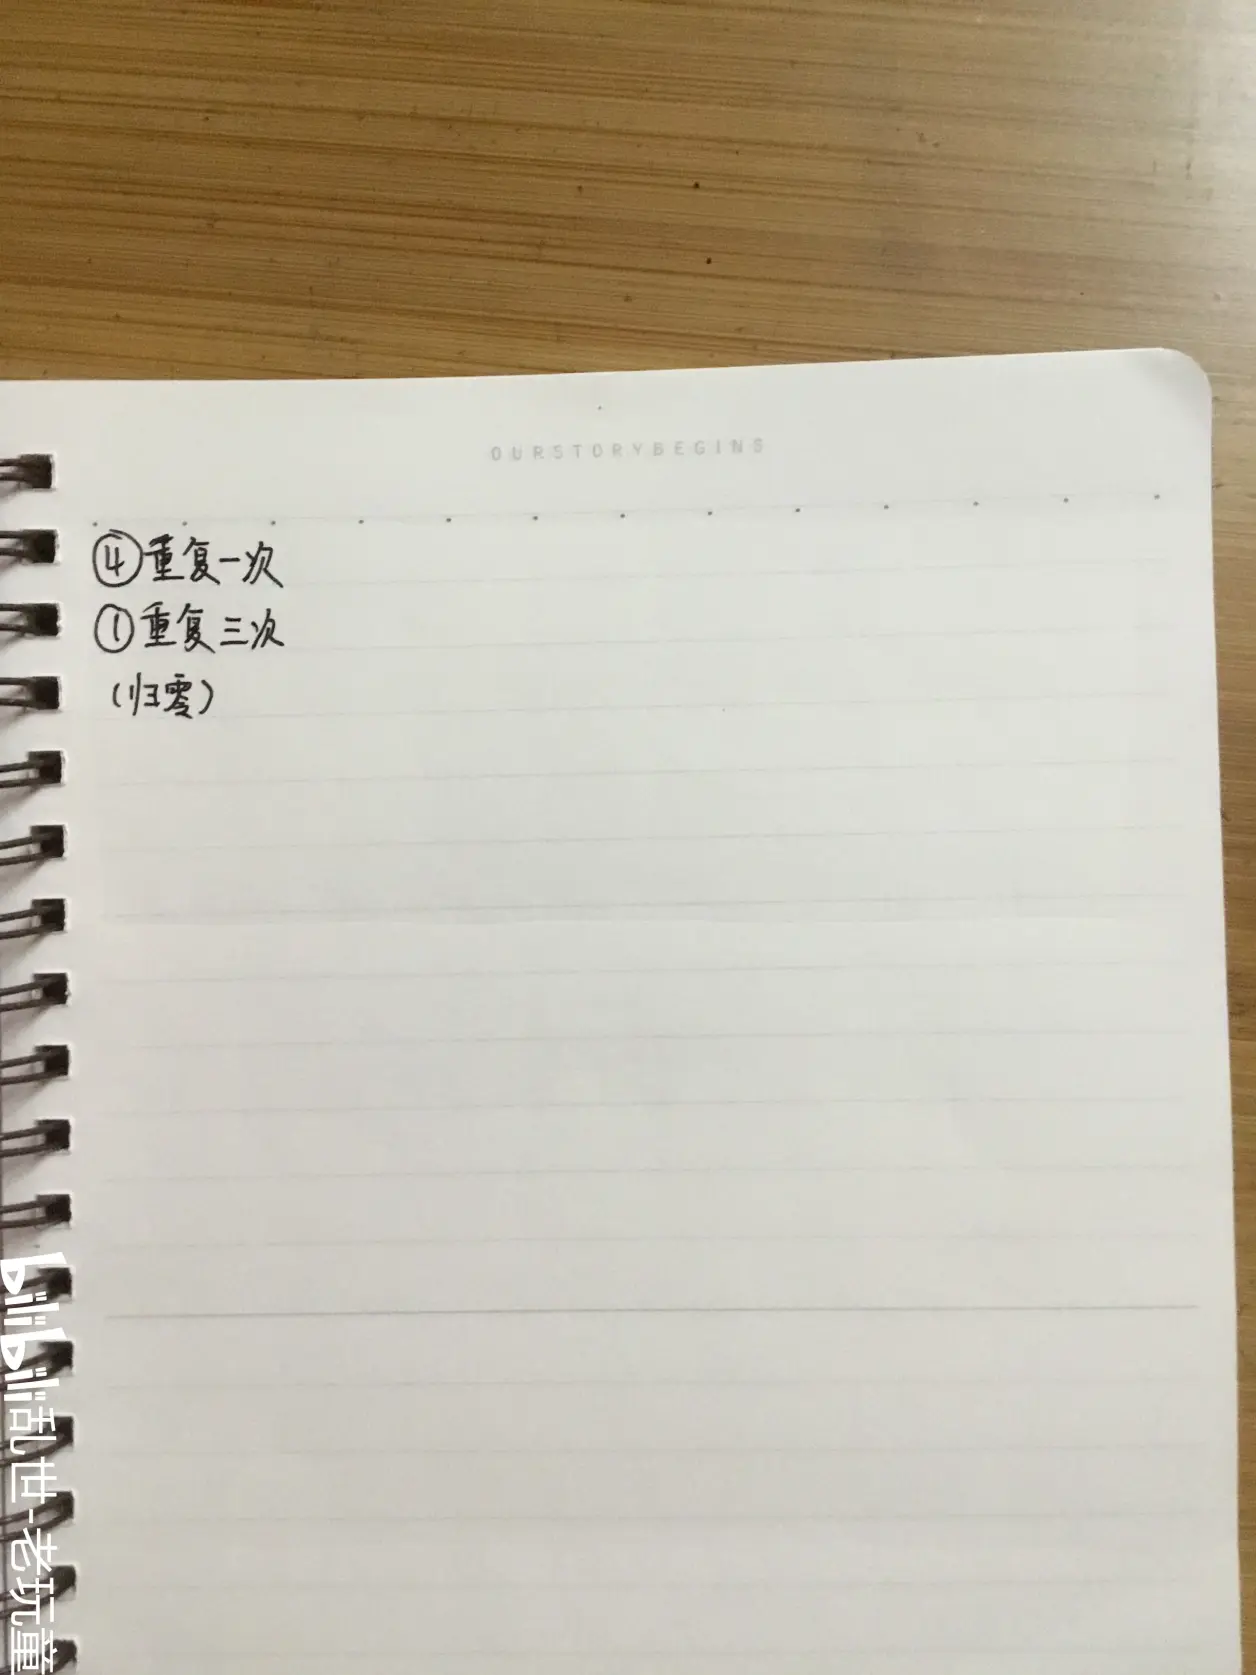 OURSTORYBEGINS
④重复一次
①重复三次
(归零)
bilibili 乱世-老玩童